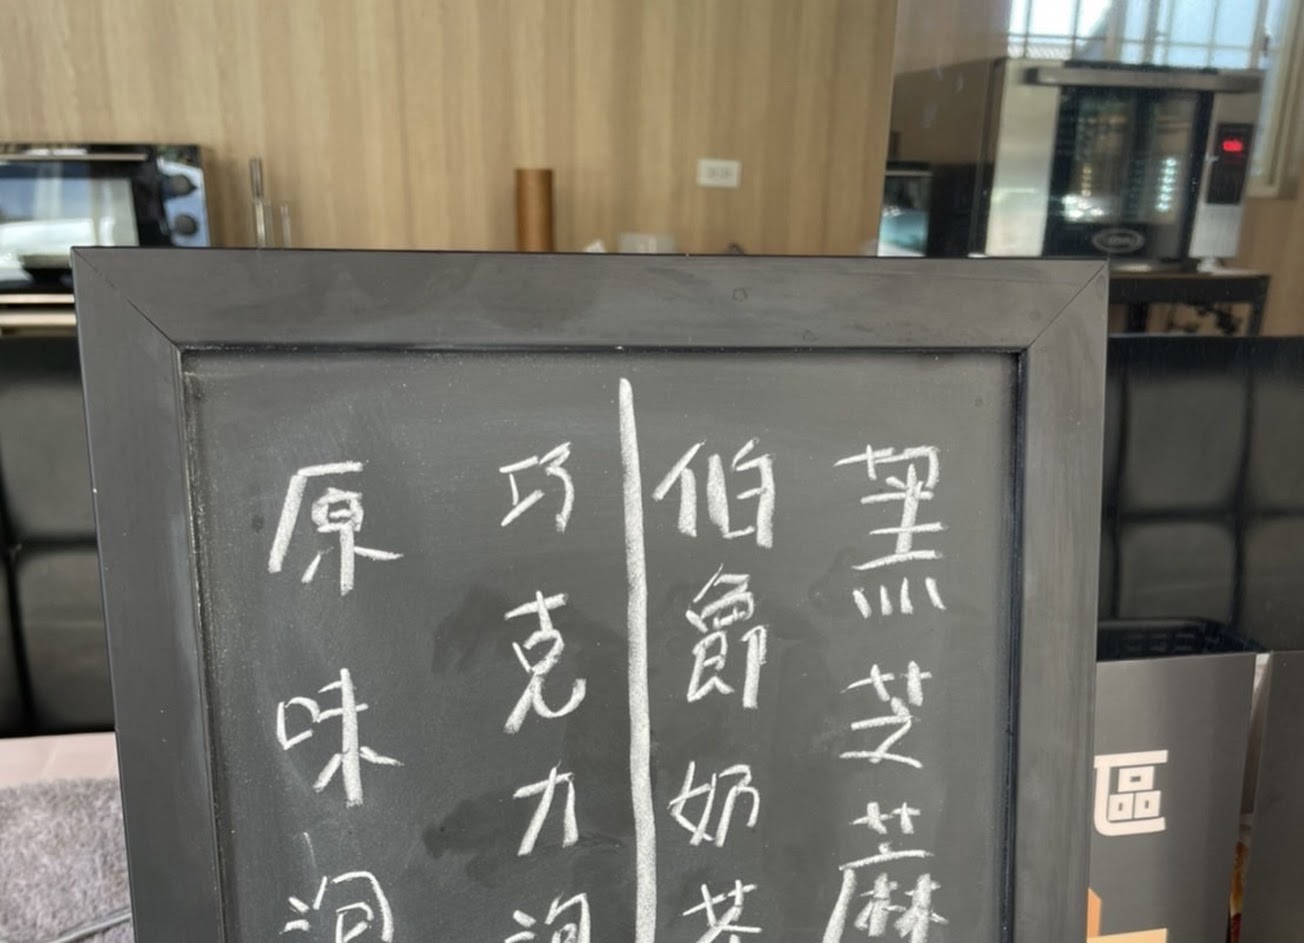 黑芝蔴
伯爵奶茶
巧克力泡
原味泡
區